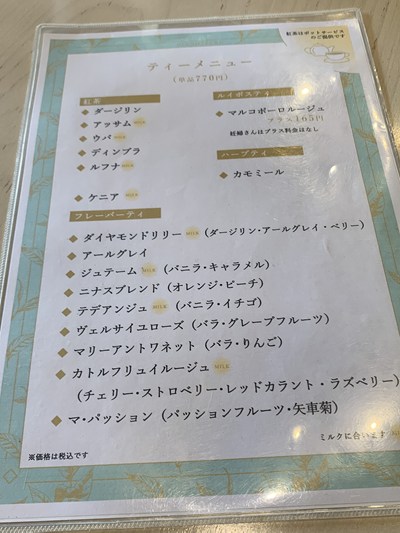 紅茶はポットサービス
のご提供です
ティーメニュー
(単品770円)
紅茶
◆ ダージリン
◆ アッサム MILK
◆ ウバ MILK
◆ ディンブラ
◆ ルフナ MILK
◆ ケニア MILK
ルイボスティー
◆ マルコポーロルージュ
プラス165円
妊婦さんはプラス料金はなし
ハーブティー
◆ カモミール
フレーバーティ
◆ ダイヤモンドリリー MILK (ダージリン・アールグレイ・ベリー)
◆ アールグレイ
◆ ジュテーム MILK (バニラ・キャラメル)
◆ ニナスブレンド (オレンジ・ピーチ)
◆ テデアンジュ MILK (バニラ・イチゴ)
◆ ヴェルサイユローズ (バラ・グレープフルーツ)
◆ マリーアントワネット (バラ・りんご)
◆ カトルフリュイルージュ MILK
(チェリー・ストロベリー・レッドカラント・ラズベリー)
◆ マ・パッション (パッションフルーツ・矢車菊)
ミルクに合います
※価格は税込です